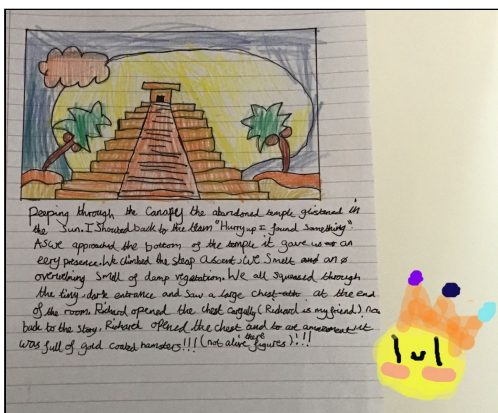 Peeping through the Canapy the abandoned temple glistened in
the Sun. I Shouted back to the team "Hurry up I found Something".
As we approached the bottom of the temple it gave us an
eery presence. We climbed the steap ascent. We Smelt an
overwelming Smell of damp vegatation. We all squased through
the tiny dark entrance and Saw a large chest at the end
of the room. Richard opened the chest carfully (Richard is my friend) now
back to the story. Richard offened the chest and to are amazement it
was full of gold coated hamsters!!! (not alive there figures)!!!